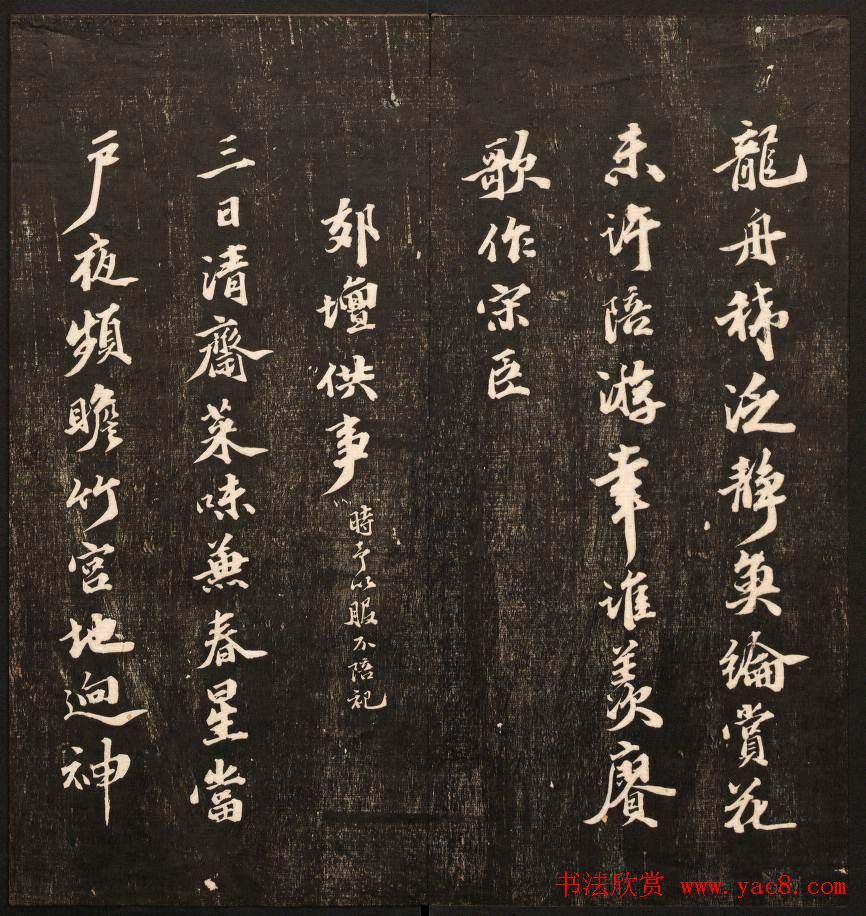 龍舟稀泛靜奐綸賞花
未許陪游幸誰羨賡
歌作宋臣
郊壇供事
時予以服不陪祀
三日清齋菜味兼春星當
戶夜頻瞻竹宮地迥神
书法欣赏 www.yac8.com